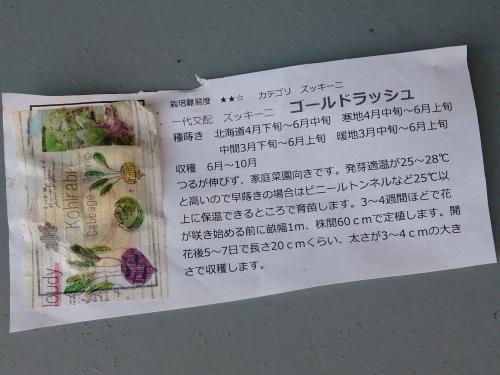 栽培難易度 ★★☆ カテゴリ ズッキーニ
一代交配 ズッキーニ ゴールドラッシュ
種蒔き 北海道4月下旬～6月中旬 寒地4月中旬～6月上旬
中間3月下旬～6月上旬 暖地3月中旬～6月上旬
収穫 6月～10月
つるが伸びず、家庭菜園向きです。発芽適温が25～28℃
と高いので早蒔きの場合はビニールトンネルなど25℃以
上に保温できるところで育苗します。3～4週間ほどで花
が咲き始める前に畝幅1m、株間60ｃｍで定植します。開
花後5～7日で長さ20ｃｍくらい、太さが3～4ｃｍの大き
さで収穫します。
Kohlrabi
Cabbage
loudy